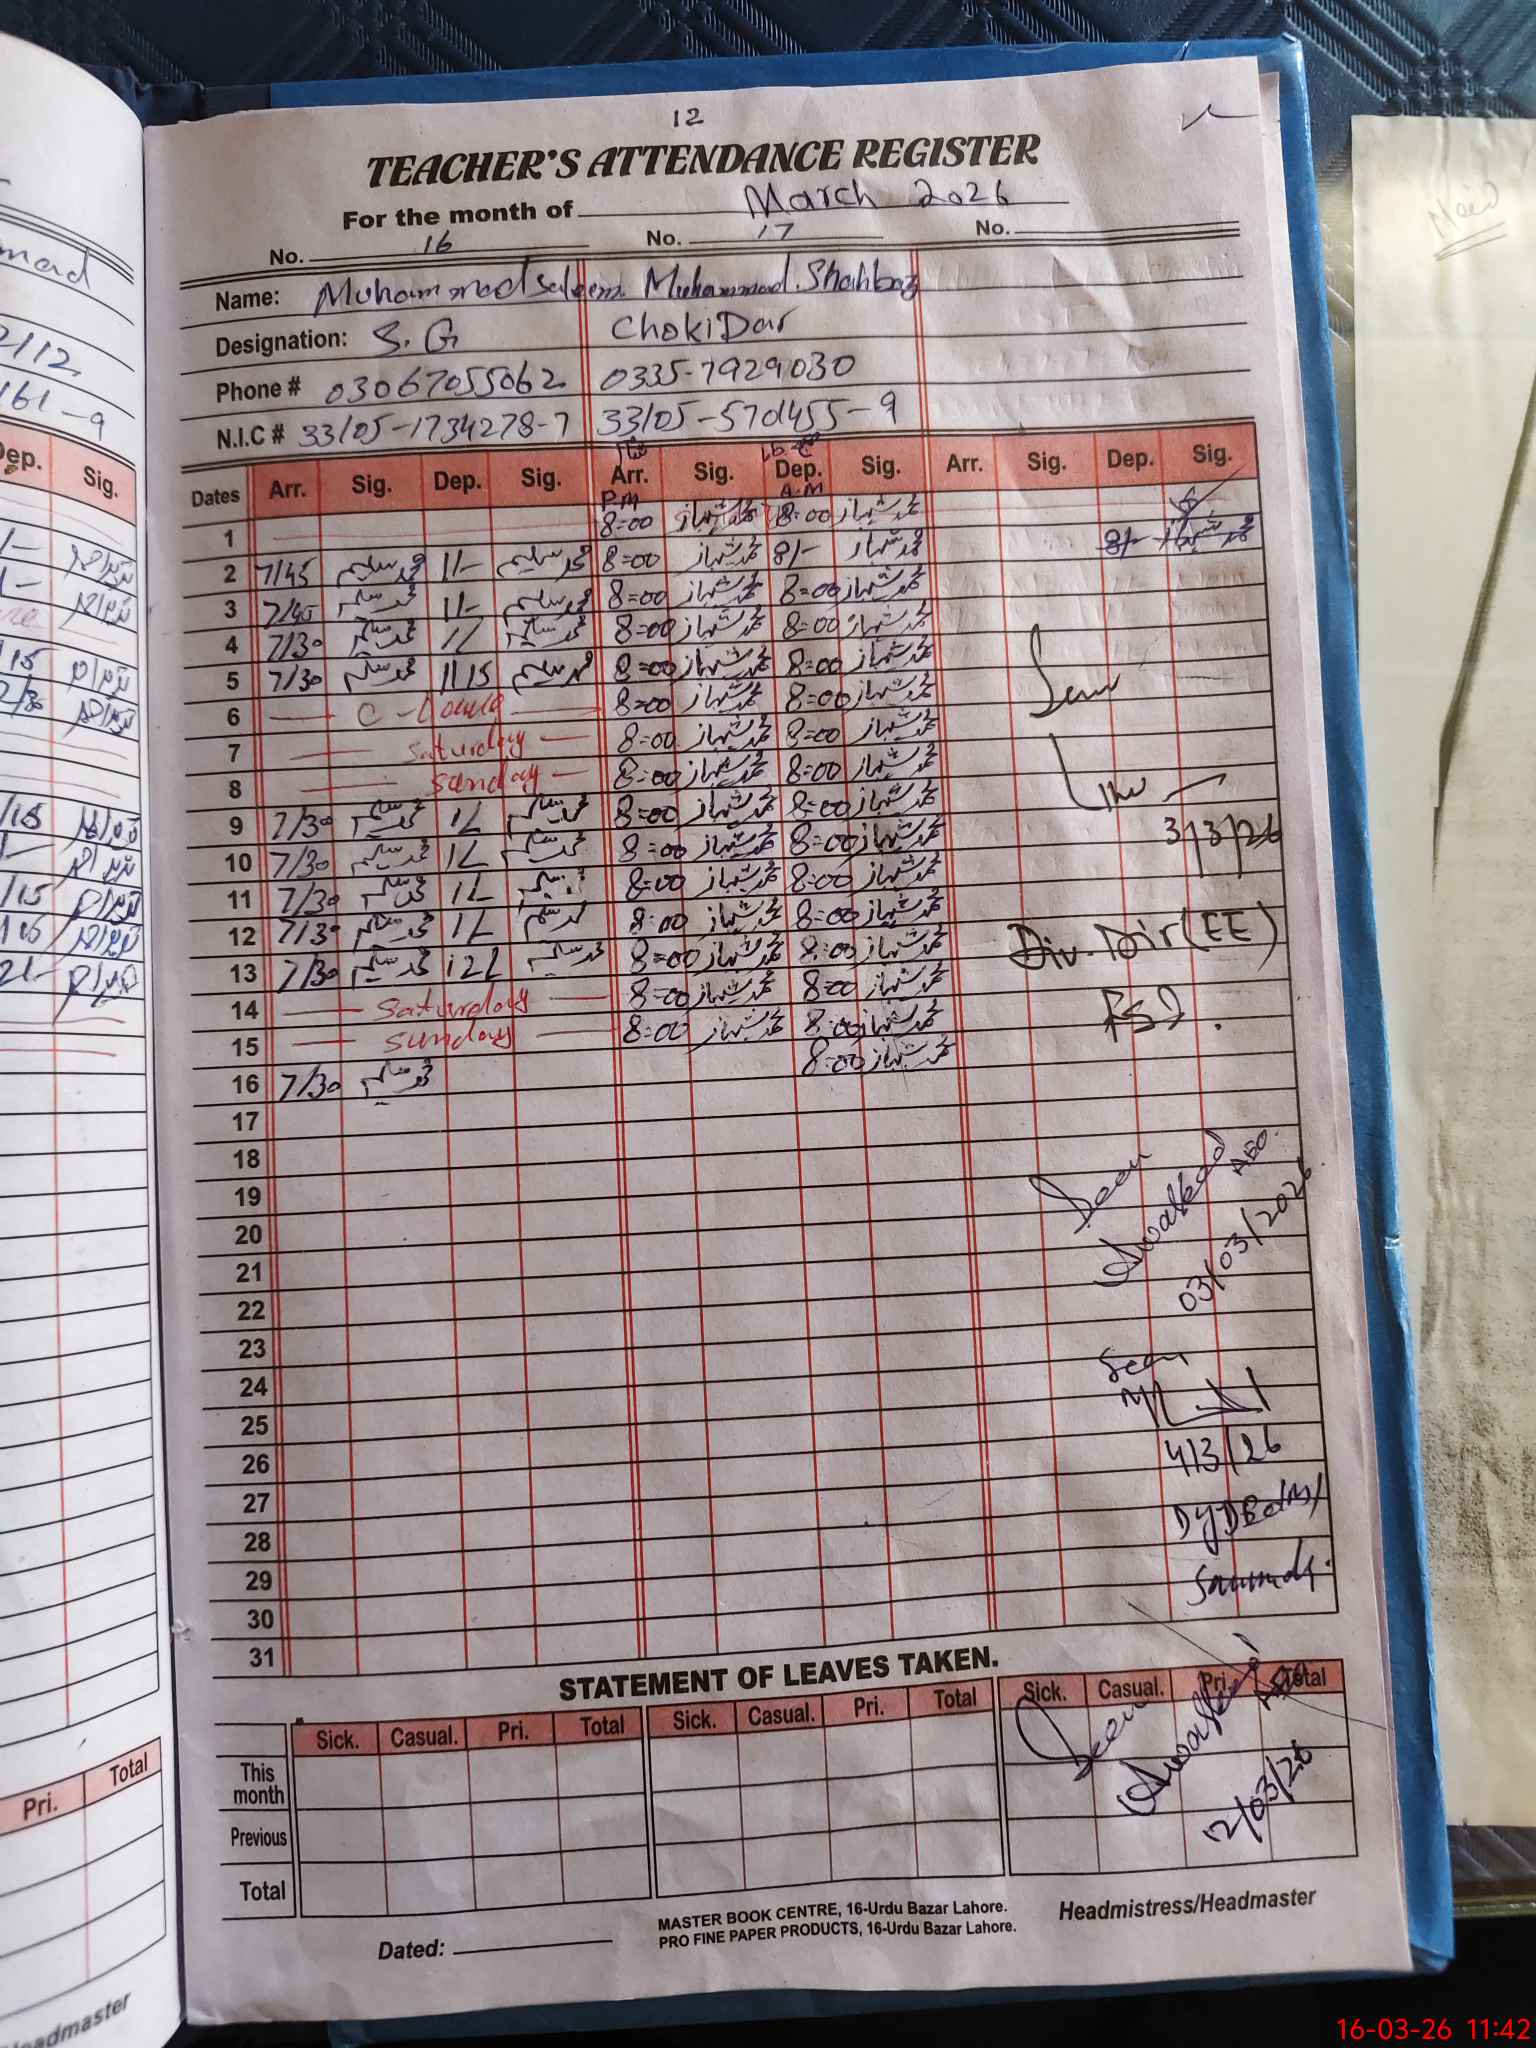 12
TEACHER'S ATTENDANCE REGISTER
For the month of March 2026
No. 16 No. 17 No.
Name: Muhammad Saleem Muhammad Shahbaz
Designation: S.G ChokiDar
Phone # 03067055062 0335-7929030
N.I.C # 33105-1734278-7
Dates Arr. Sig. Dep. Sig. Arr. Sig. Dep. Sig. Arr. Sig. Dep. Sig.
P.M A.M
1 8=00 محمد شہباز 8=00 محمد شہباز
2 7/45 محمد سلیم 1/- محمد سلیم 8=00 محمد شہباز 8/- محمد شہباز 8/- محمد شہباز
3 7/45 محمد سلیم 1/- محمد سلیم 8=00 محمد شہباز 8=00 محمد شہباز
4 7/30 محمد سلیم 1/ محمد سلیم 8=00 محمد شہباز 8=00 محمد شہباز
5 7/30 محمد سلیم 1/15 محمد سلیم 8=00 محمد شہباز 8=00 محمد شہباز
6 8=00 محمد شہباز 8=00 محمد شہباز
7 Saturday 8=00 محمد شہباز 8=00 محمد شہباز
8 Sunday 8=00 محمد شہباز 8=00 محمد شہباز
9 7/30 محمد سلیم 1/ محمد سلیم 8=00 محمد شہباز 8=00 محمد شہباز
10 7/30 محمد سلیم 1/ محمد سلیم 8=00 محمد شہباز 8=00 محمد شہباز
11 7/30 محمد سلیم 1/ محمد سلیم 8=00 محمد شہباز 8=00 محمد شہباز
12 7/30 محمد سلیم 1/ محمد سلیم 8=00 محمد شہباز 8=00 محمد شہباز
13 7/30 محمد سلیم 12/ محمد سلیم 8=00 محمد شہباز 8=00 محمد شہباز
14 Saturday 8=00 محمد شہباز 8=00 محمد شہباز
15 Sunday 8=00 محمد شہباز 8=00 محمد شہباز
16 7/30 محمد سلیم 8=00 محمد شہباز
17
18
19
20
21
22
23
24
25
26
27
28
29
30
31
3/3/26
Div. Dir (EE)
FSD.
Seen
AEO.
03/03/2026
Seen
4/3/26
STATEMENT OF LEAVES TAKEN.
Sick. Casual. Pri. Total Sick. Casual. Pri. Total Sick. Casual. Pri. Total
This month
Previous
Total
Seen
AEO
2/03/26
Dated:
MASTER BOOK CENTRE, 16-Urdu Bazar Lahore.
PRO FINE PAPER PRODUCTS, 16-Urdu Bazar Lahore.
Headmistress/Headmaster
Dep. Sig.
Total
Pri.
16-03-26 11:42